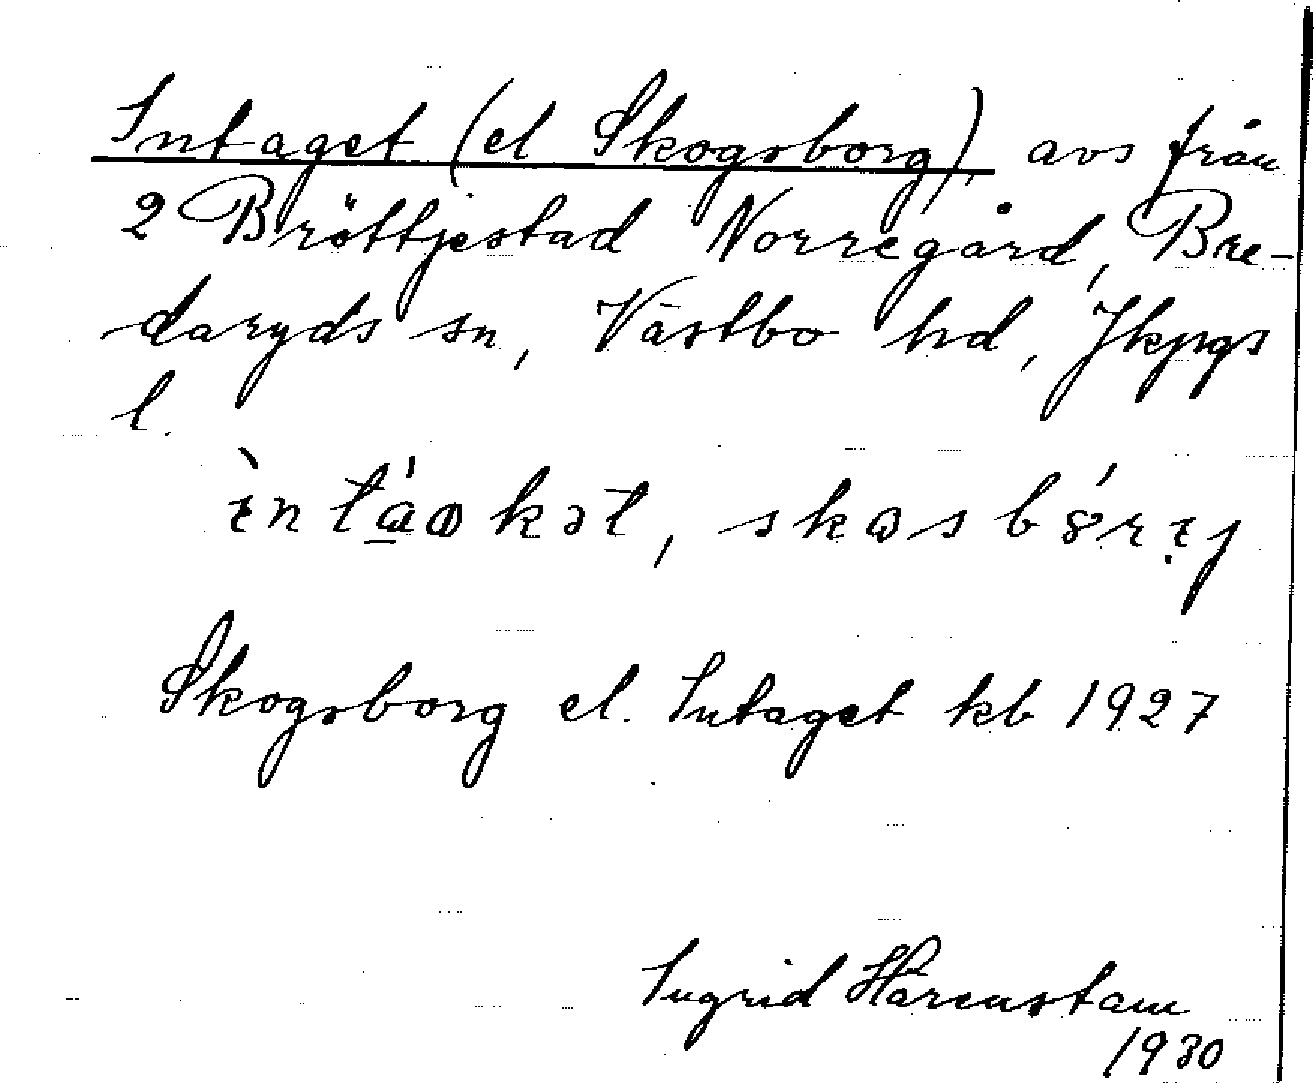 Intaget (el Skogsborg), avs från
2 Bröttjestad Norregård, Bre-
daryds sn, Västbo hd, Jkpgs
l.
Skogsborg el. Intaget kb 1927
Ingrid Härenstam
1930